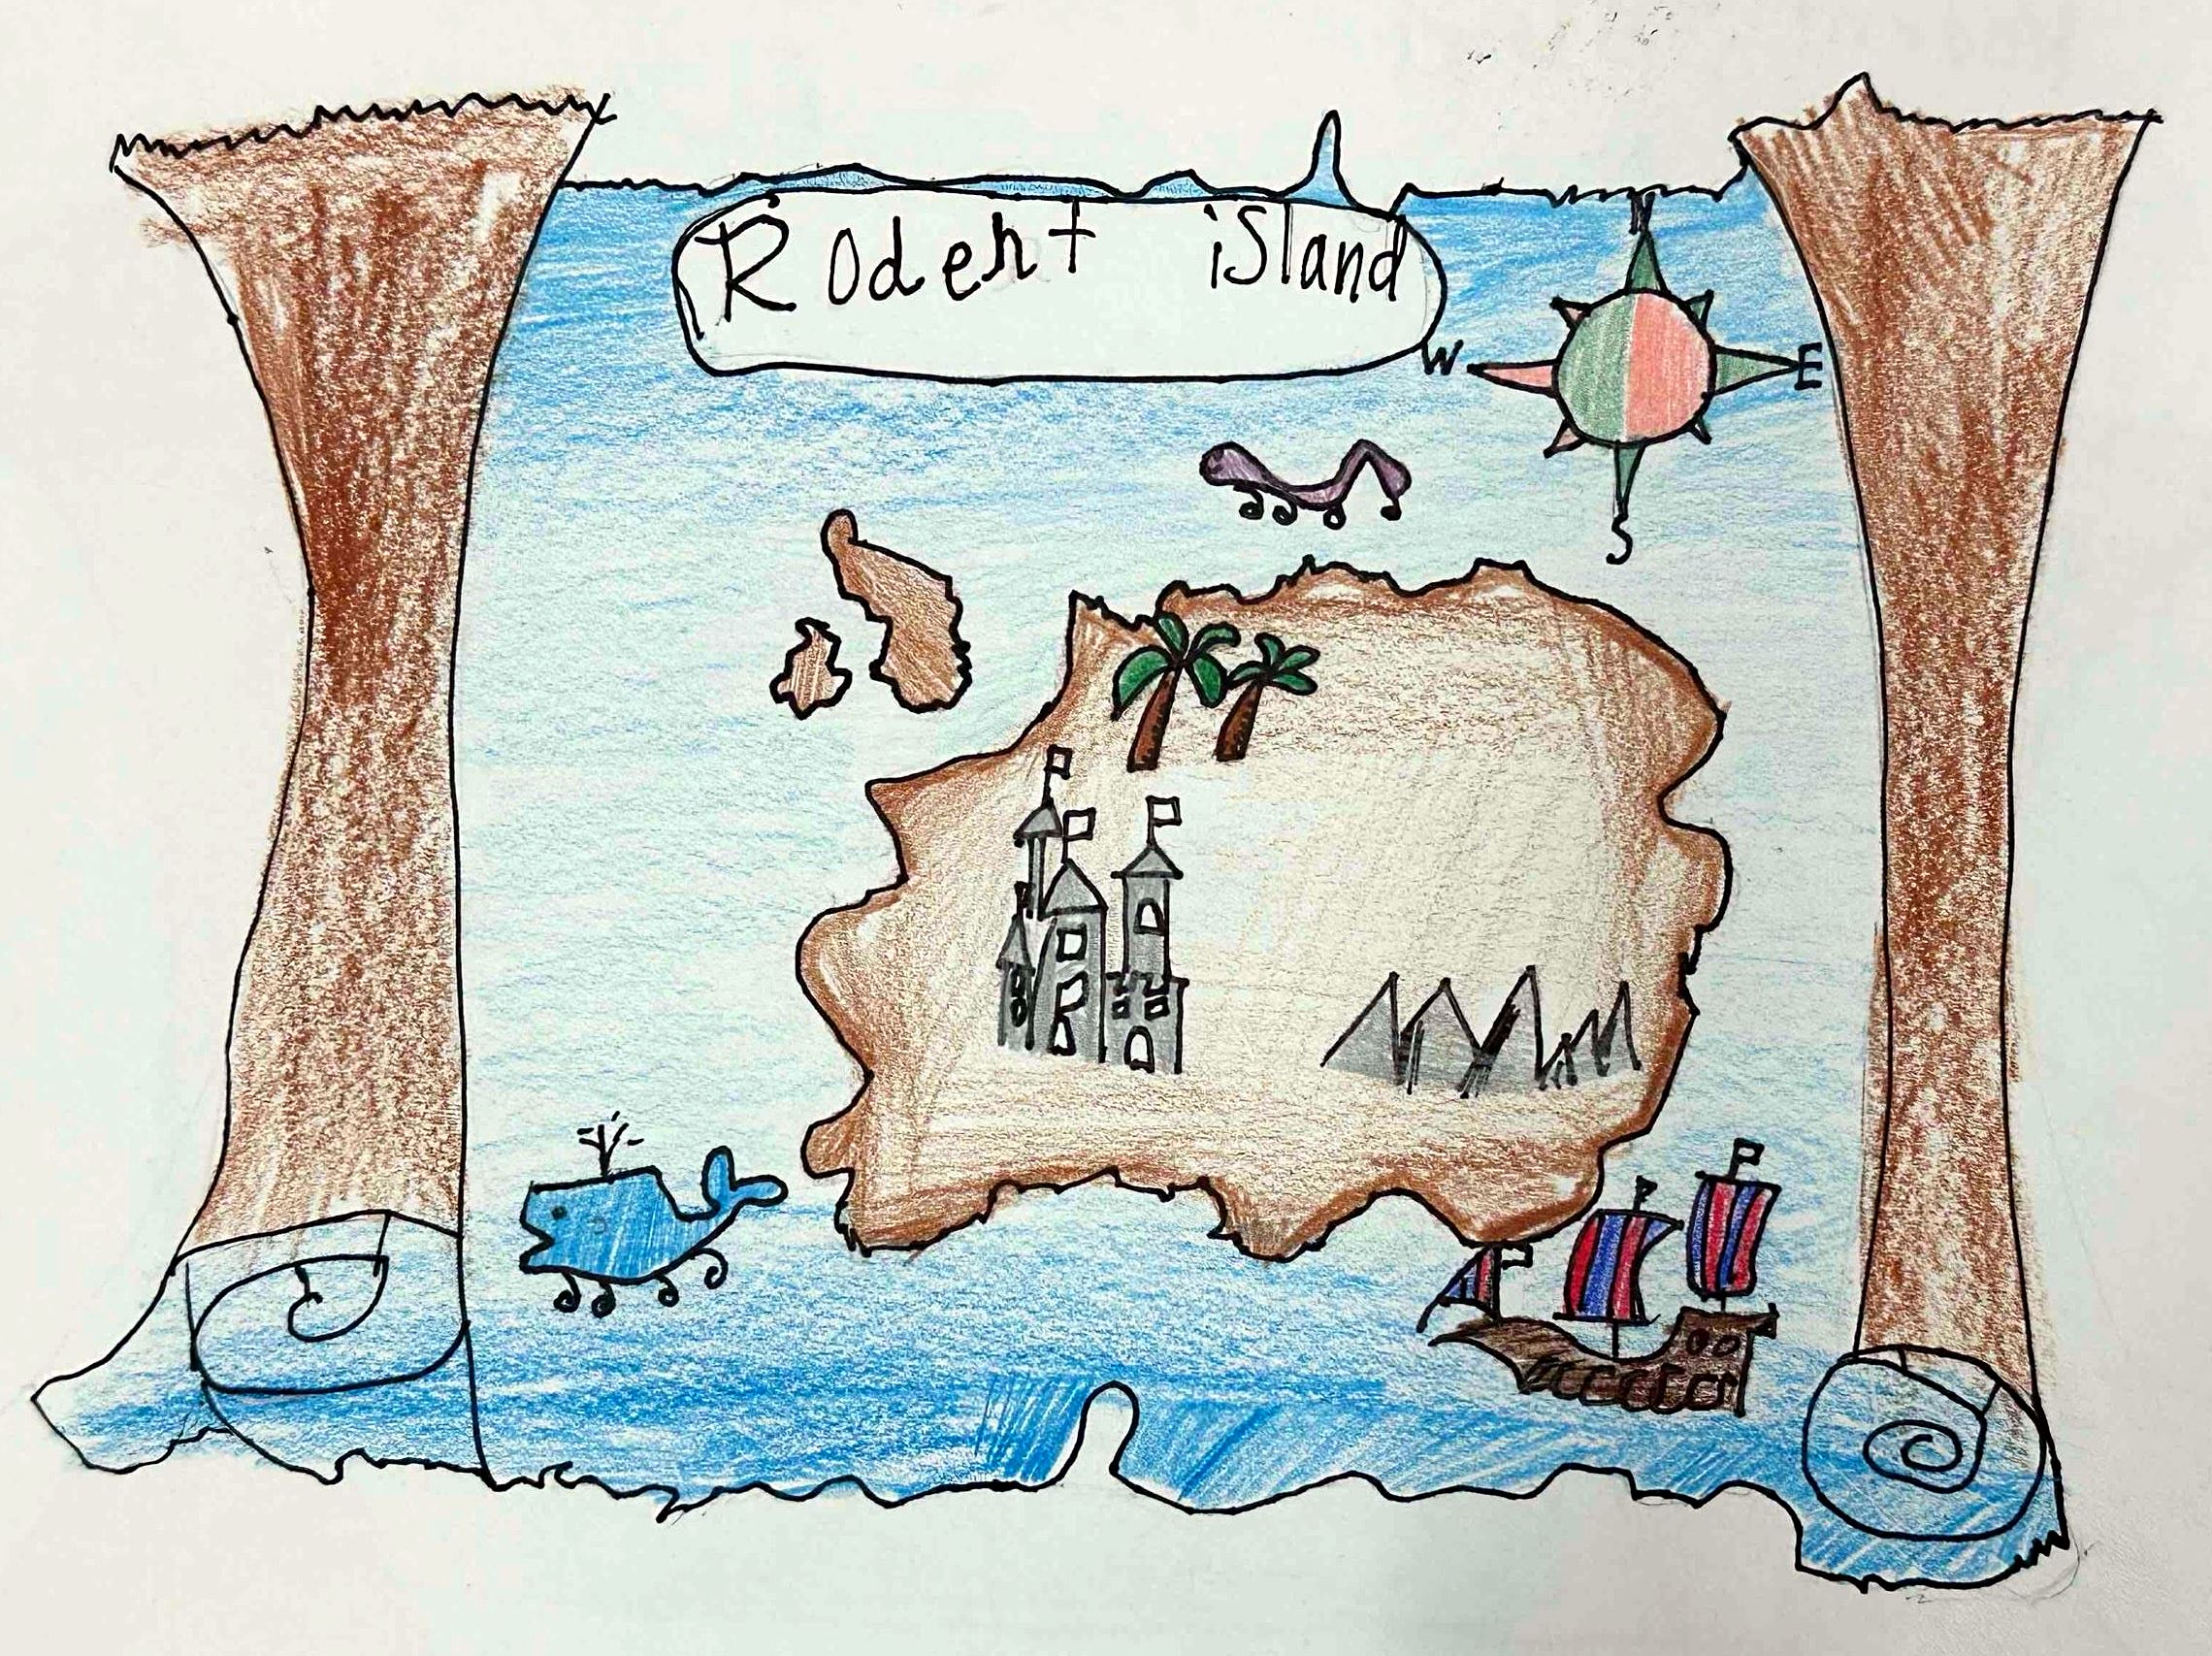 Rodent island
N
W E
S